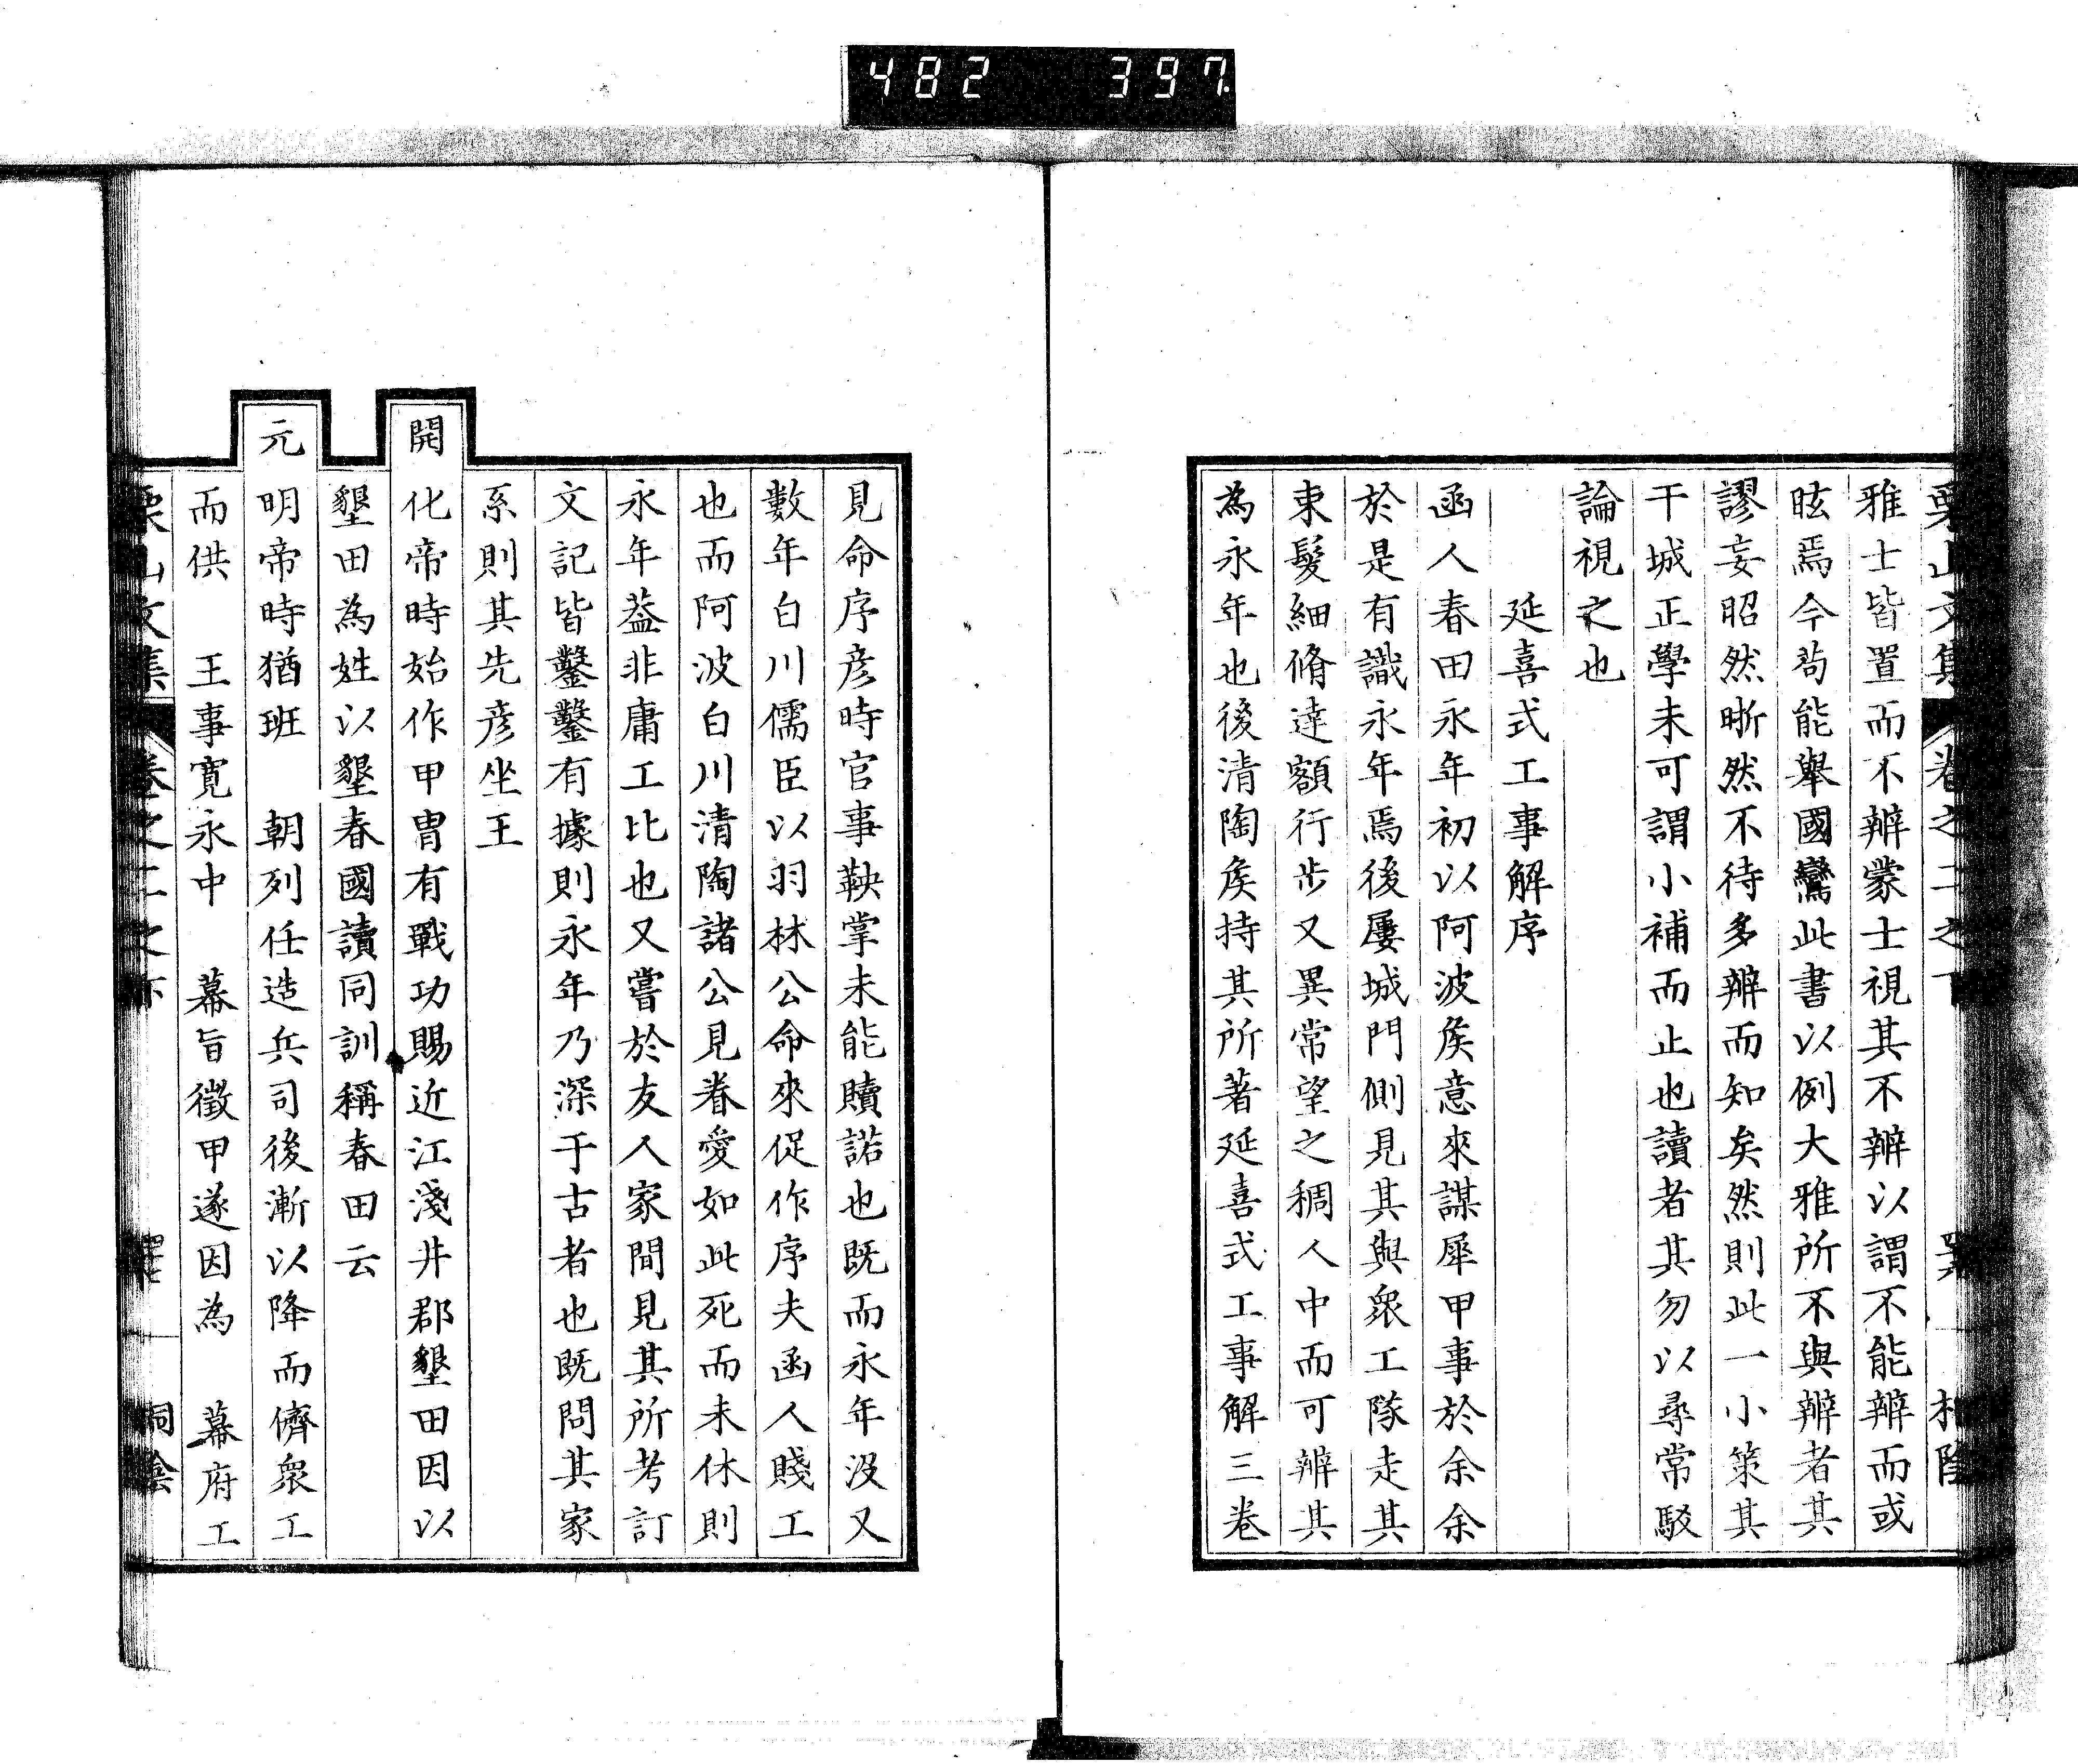 482 397
栗山文集 卷之二之下
雅士皆置而不辨蒙士視其不辨以謂不能辨而或
眩焉今苟能舉國鸞此書以例大雅所不與辨者其
謬妄昭然晣然不待多辨而知矣然則此一小策其
干城正學未可謂小補而止也讀者其勿以尋常駁
論視之也
延喜式工事解序
函人春田永年初以阿波矦意來謀犀甲事於余余
於是有識永年焉後屢城門側見其與眾工隊走其
束髮細脩達額行步又異常望之稠人中而可辨其
為永年也後清陶矦持其所著延喜式工事解三卷
見命序彥時官事鞅掌未能贖諾也既而永年沒又
數年白川儒臣以羽林公命來促作序夫函人賤工
也而阿波白川清陶諸公見眷愛如此死而未休則
永年葢非庸工比也又嘗於友人家間見其所考訂
文記皆鑿鑿有據則永年乃深于古者也既問其家
系則其先彥坐王
開化帝時始作甲冑有戰功賜近江淺井郡墾田因以
墾田為姓以墾春國讀同訓稱春田云
元明帝時猶班 朝列任造兵司後漸以降而儕眾工
而供 王事寬永中 幕旨徵甲遂因為 幕府工
栗山文集 卷之二之下 桐陰